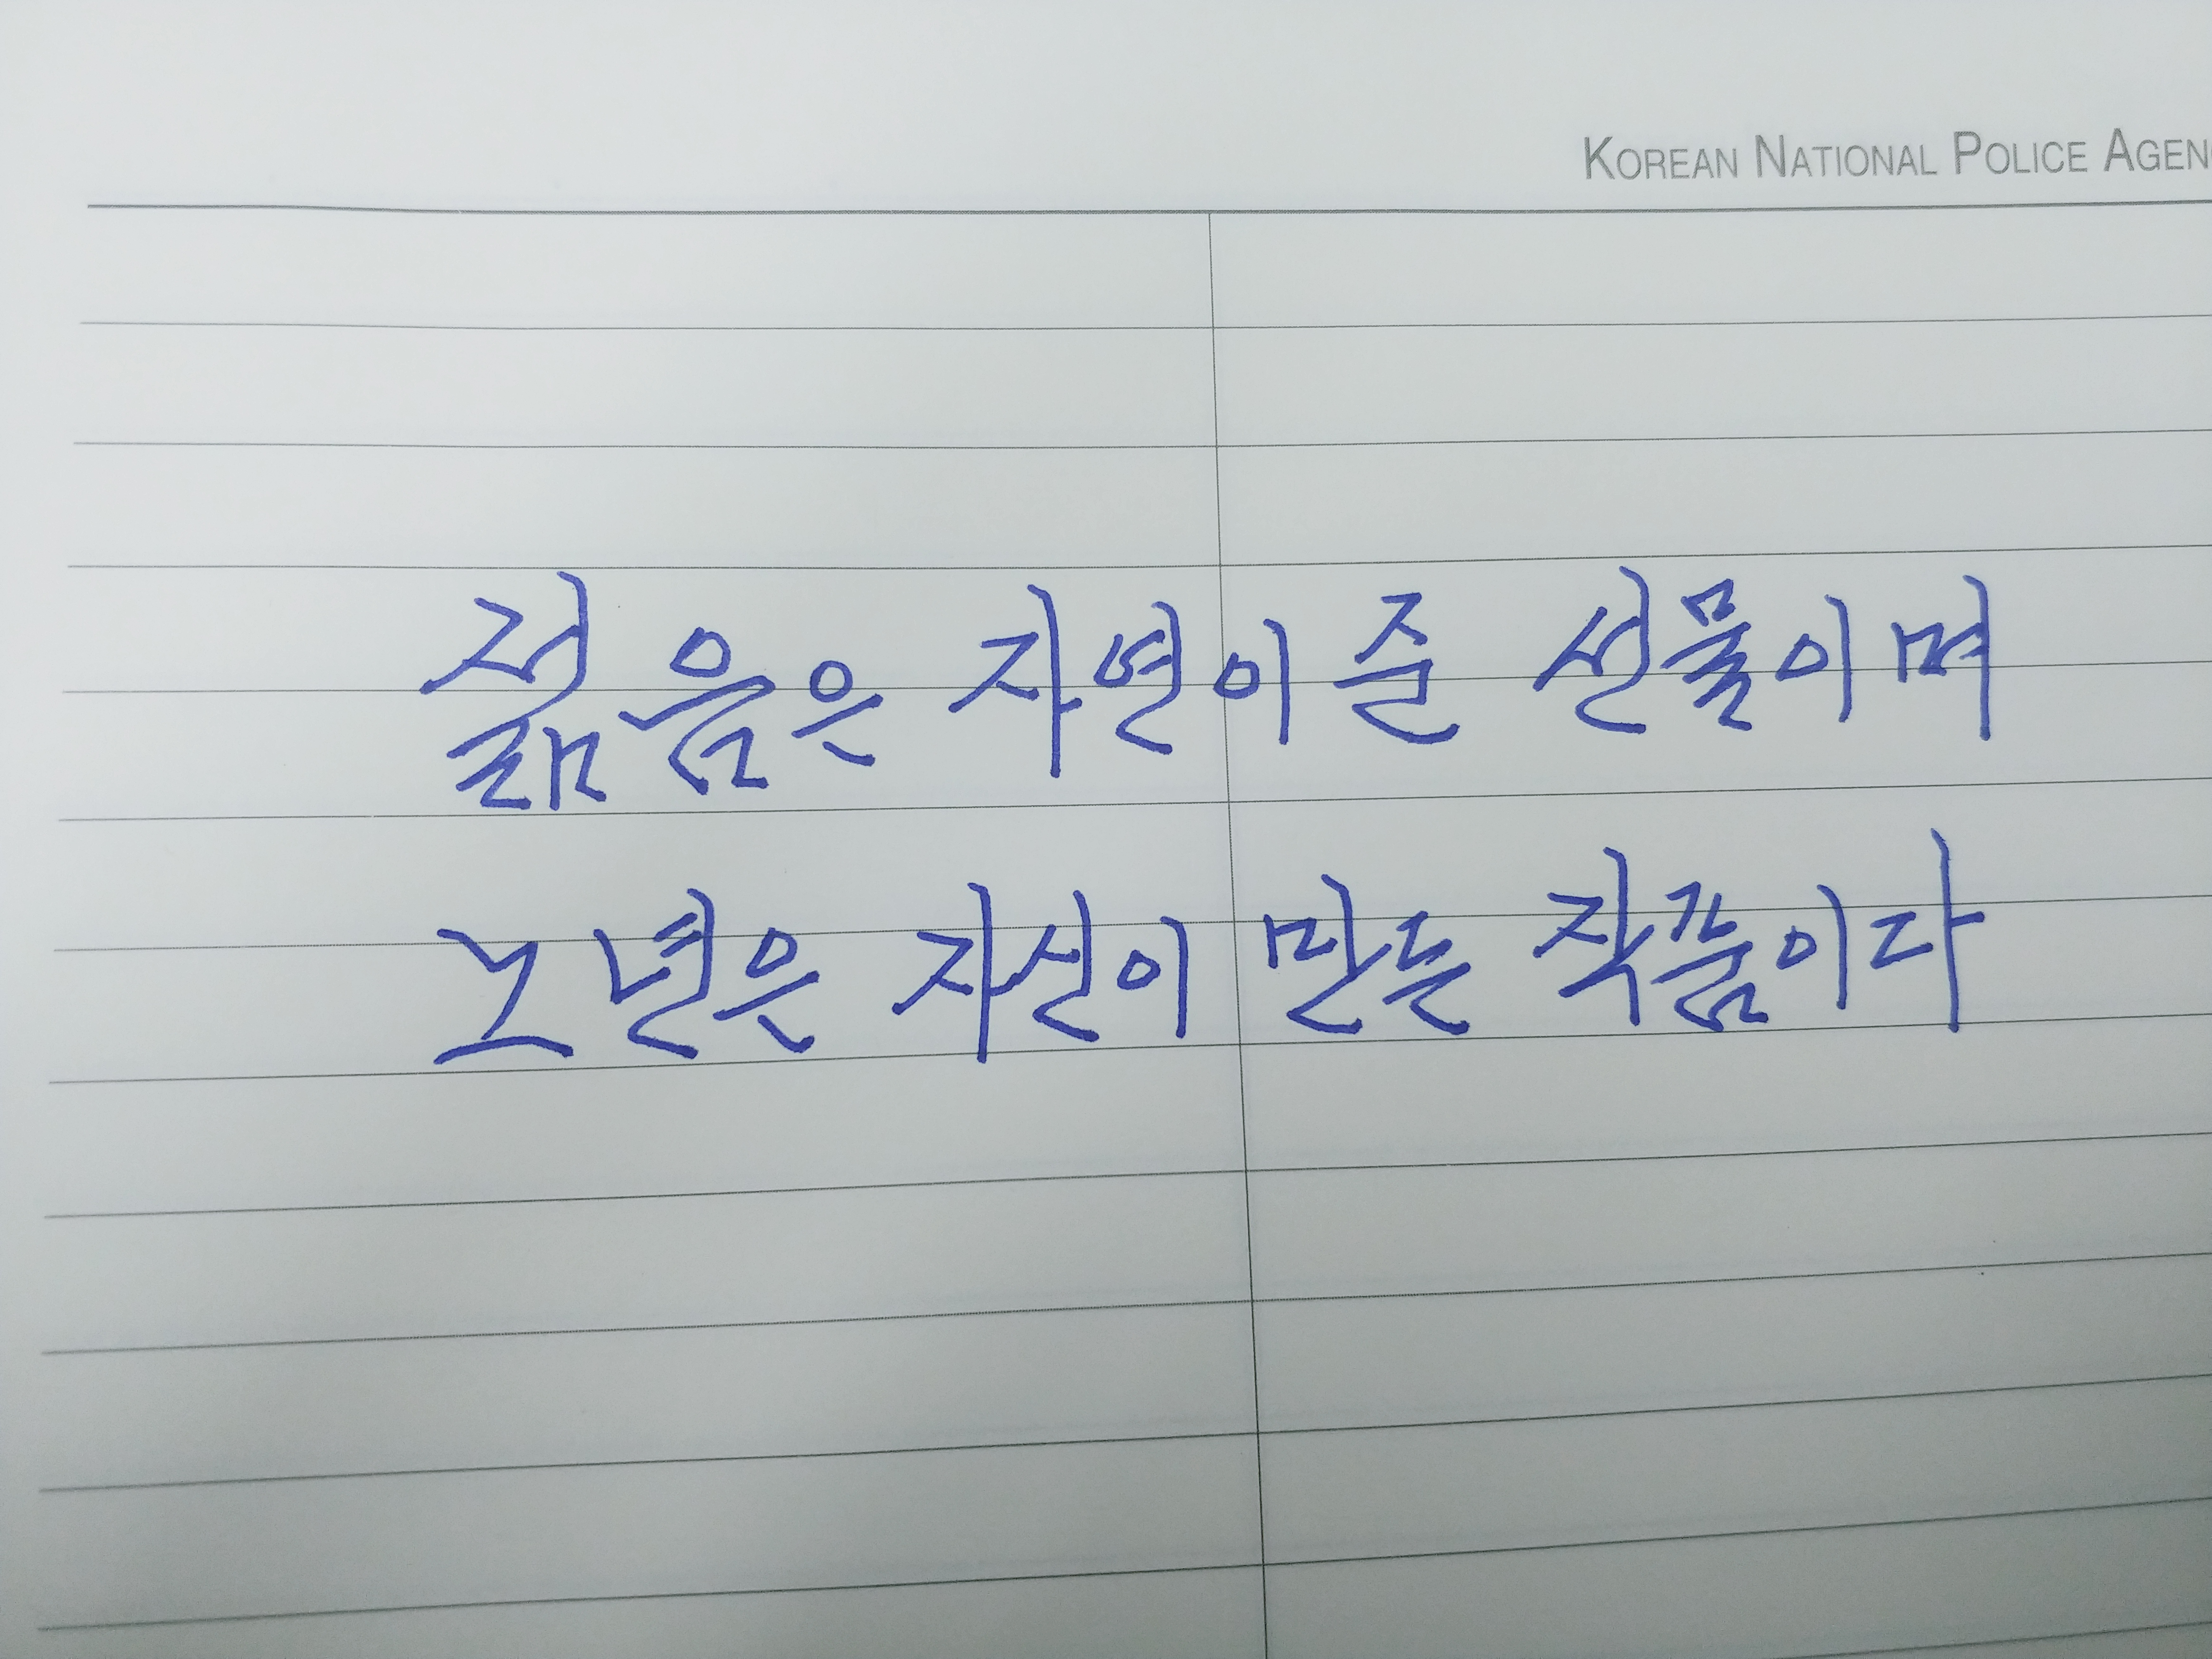 KOREAN NATIONAL POLICE AGEN
젊음은 자연이 준 선물이며
노년은 자신이 만든 작품이다